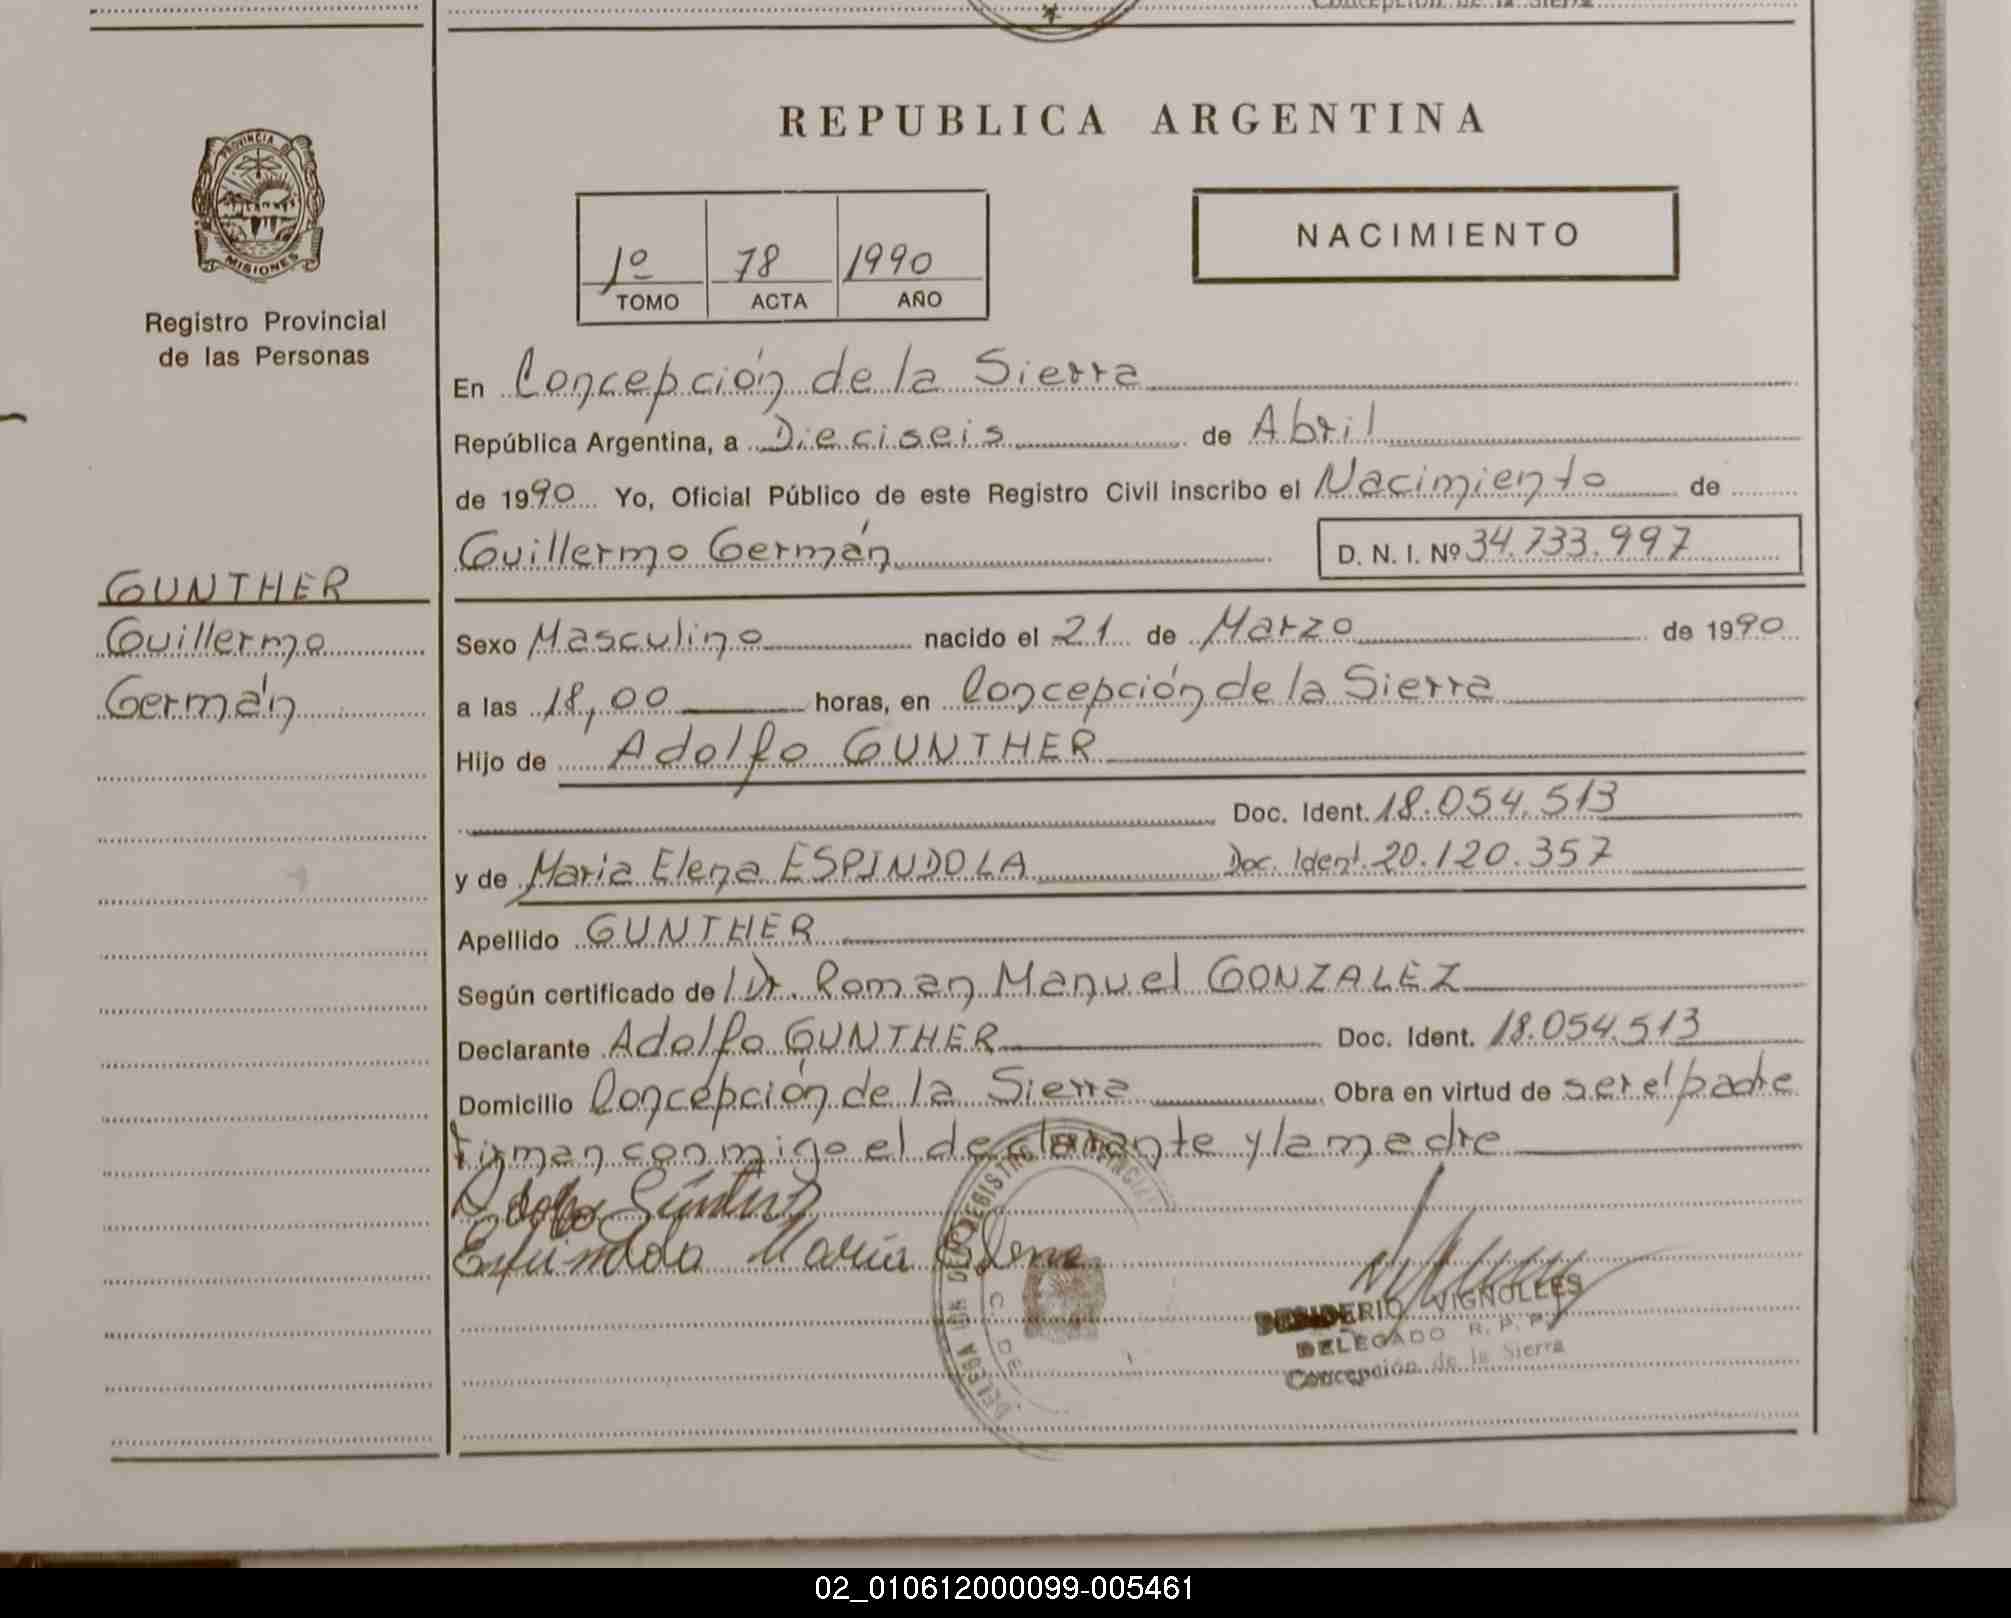 Concepción de la Sierra
PROVINCIA DE
MISIONES
Registro Provincial
de las Personas
GUNTHER
Guillermo
Germán
REPUBLICA ARGENTINA
1º 78 1990
TOMO ACTA AÑO
NACIMIENTO
En Concepción de la Sierra
República Argentina, a Dieciseis de Abril
de 1990 Yo, Oficial Público de este Registro Civil inscribo el Nacimiento de
Guillermo Germán D. N. I. Nº 34.733.997
Sexo Masculino nacido el 21 de Marzo de 1990
a las 18,00 horas, en Concepción de la Sierra
Hijo de Adolfo GUNTHER
Doc. Ident. 18.054.513
y de Maria Elena ESPINDOLA Doc. Ident. 20.120.357
Apellido GUNTHER
Según certificado de Dr. Roman Manuel GONZALEZ
Declarante Adolfo GUNTHER Doc. Ident. 18.054.513
Domicilio Concepción de la Sierra Obra en virtud de ser el padre
Firman conmigo el declarante y la madre
Adolfo Günther
Espindola Maria Elena
REGISTRO PROVINCIAL
DESIDERIO VIGNOLLES
DELEGADO R. P. P.
Concepción de la Sierra
02_010612000099-005461